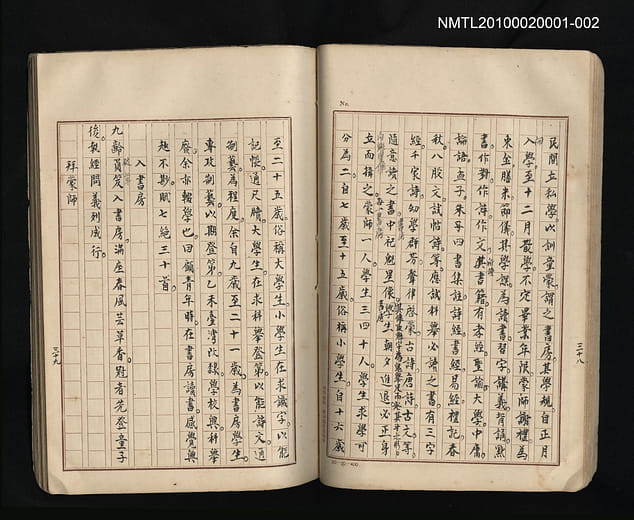 NMTL20100020001-002
No.
三十八
民間立私學以訓童蒙謂之書房其學規自正月
入學至十二月散學不定畢業年限蒙師謝禮為
束金膳米節儀其學課為讀書習字講義背誦默
書作對作詩作文其書籍有孝經聖諭大學中庸
論語孟子朱子四書集註詩經書經易經禮記春
秋八股文試帖詩等應試科舉必讀之書有三字
經千家詩幼學群芳聲律啓蒙古詩唐詩古文等
隨意讀之書中祀魁星像學生朝夕進退必正身
立面揖之蒙師一人學生三四十人學生求學可
分為二自七歲至十五歲俗稱小學生自十六歲
至二十五歲俗稱大學生小學生在求識字以能
記帳通尺牘大學生在求科舉登第以能詩文通
制藝為程度余自九歲至二十一歲為書房學生
專攻制藝以期登第乙未臺灣改隸學校興科舉
廢余亦輟學也回顧青年時在書房讀書感覺興
趣不尠賦七絕三十首
入書房
九齡負笈入書房滿座春風芸草香冠者先登童子
後執經問義列成行
拜蒙師
三十九